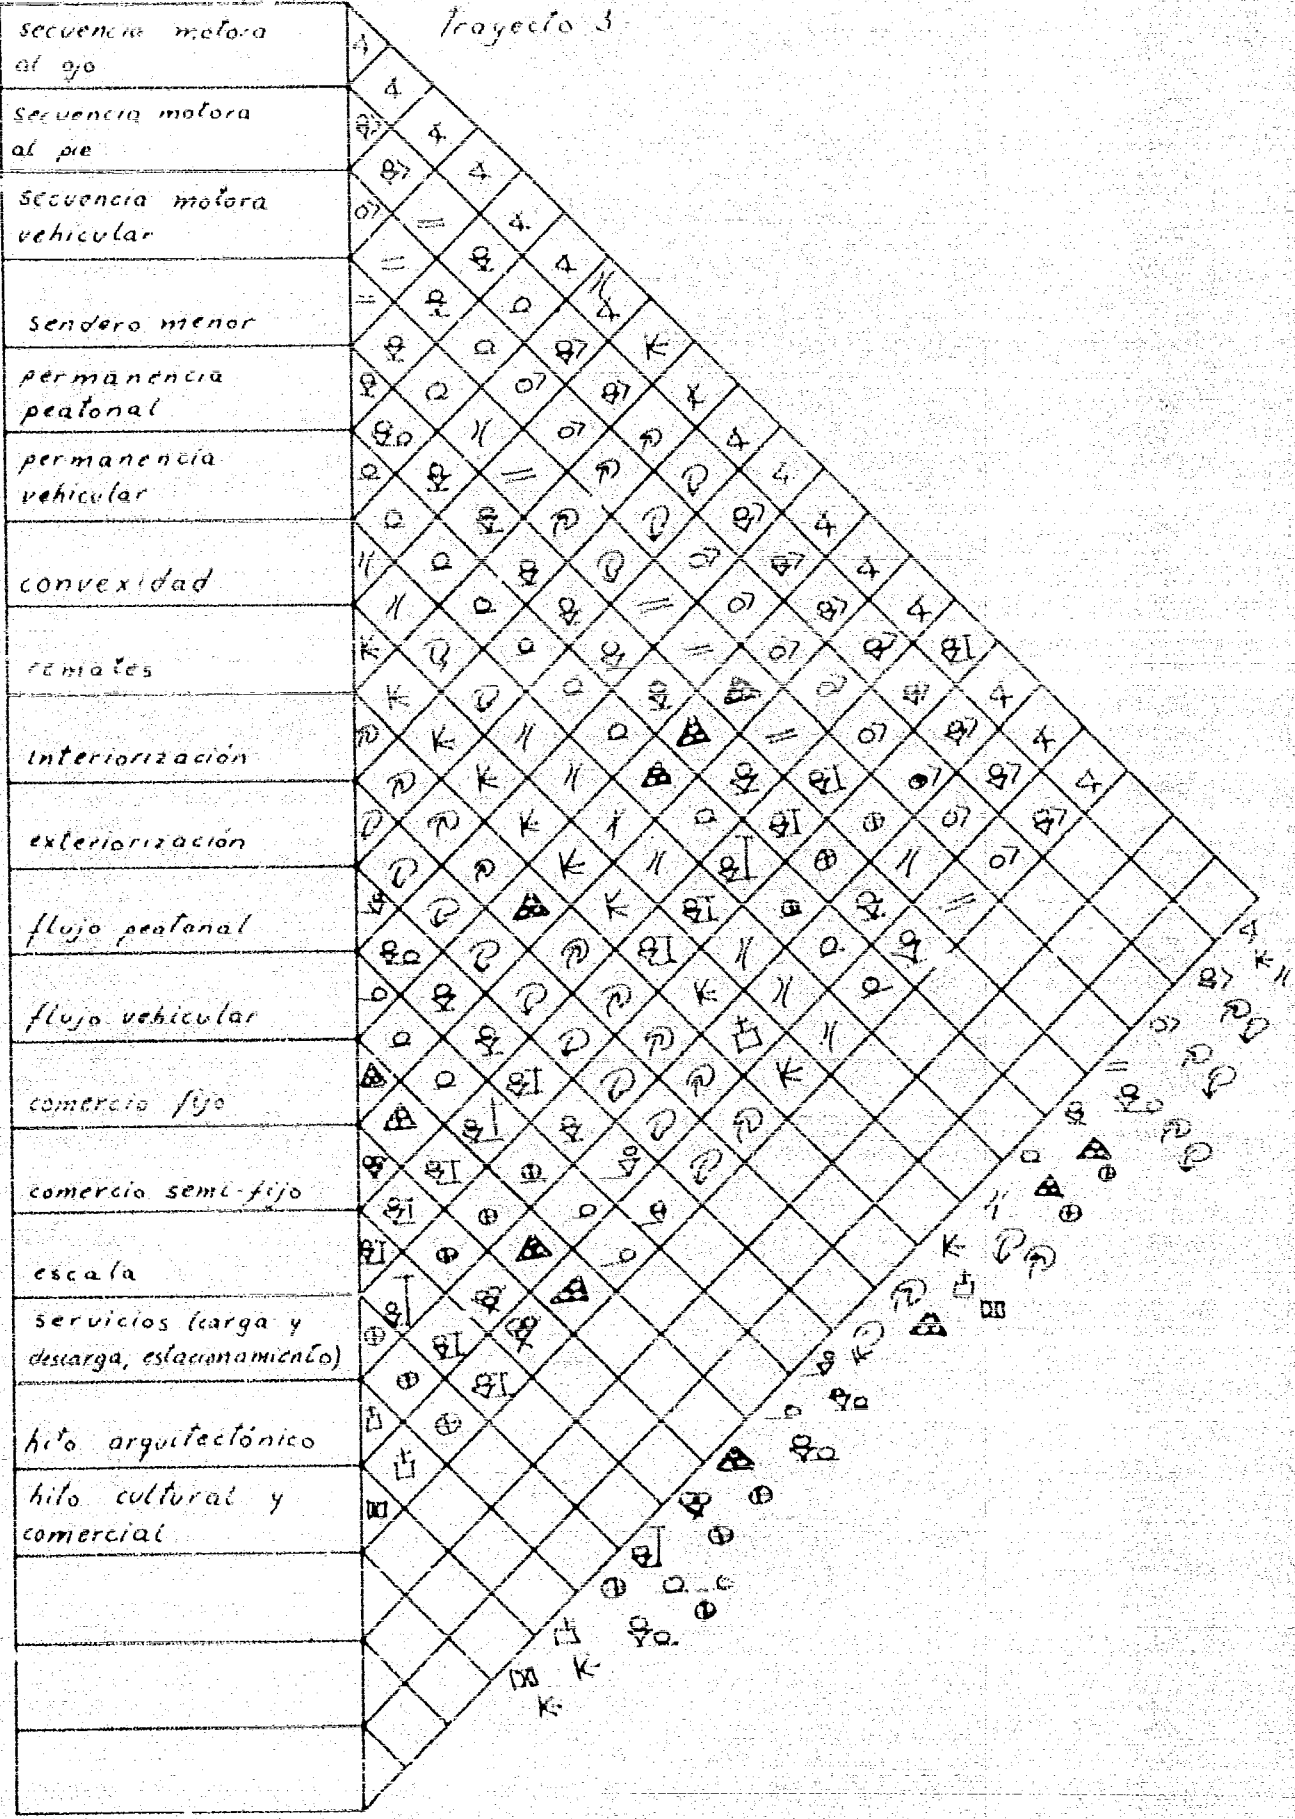 Trayecto 3
secuencia motora
al ojo
secuencia motora
al pie
secuencia motora
vehicular
sendero menor
permanencia
peatonal
permanencia
vehicular
convexidad
remates
interiorización
exteriorización
flujo peatonal
flujo vehicular
comercio fijo
comercio semi-fijo
escala
servicios (carga y
descarga, estacionamiento)
hito arquitectónico
hito cultural y
comercial